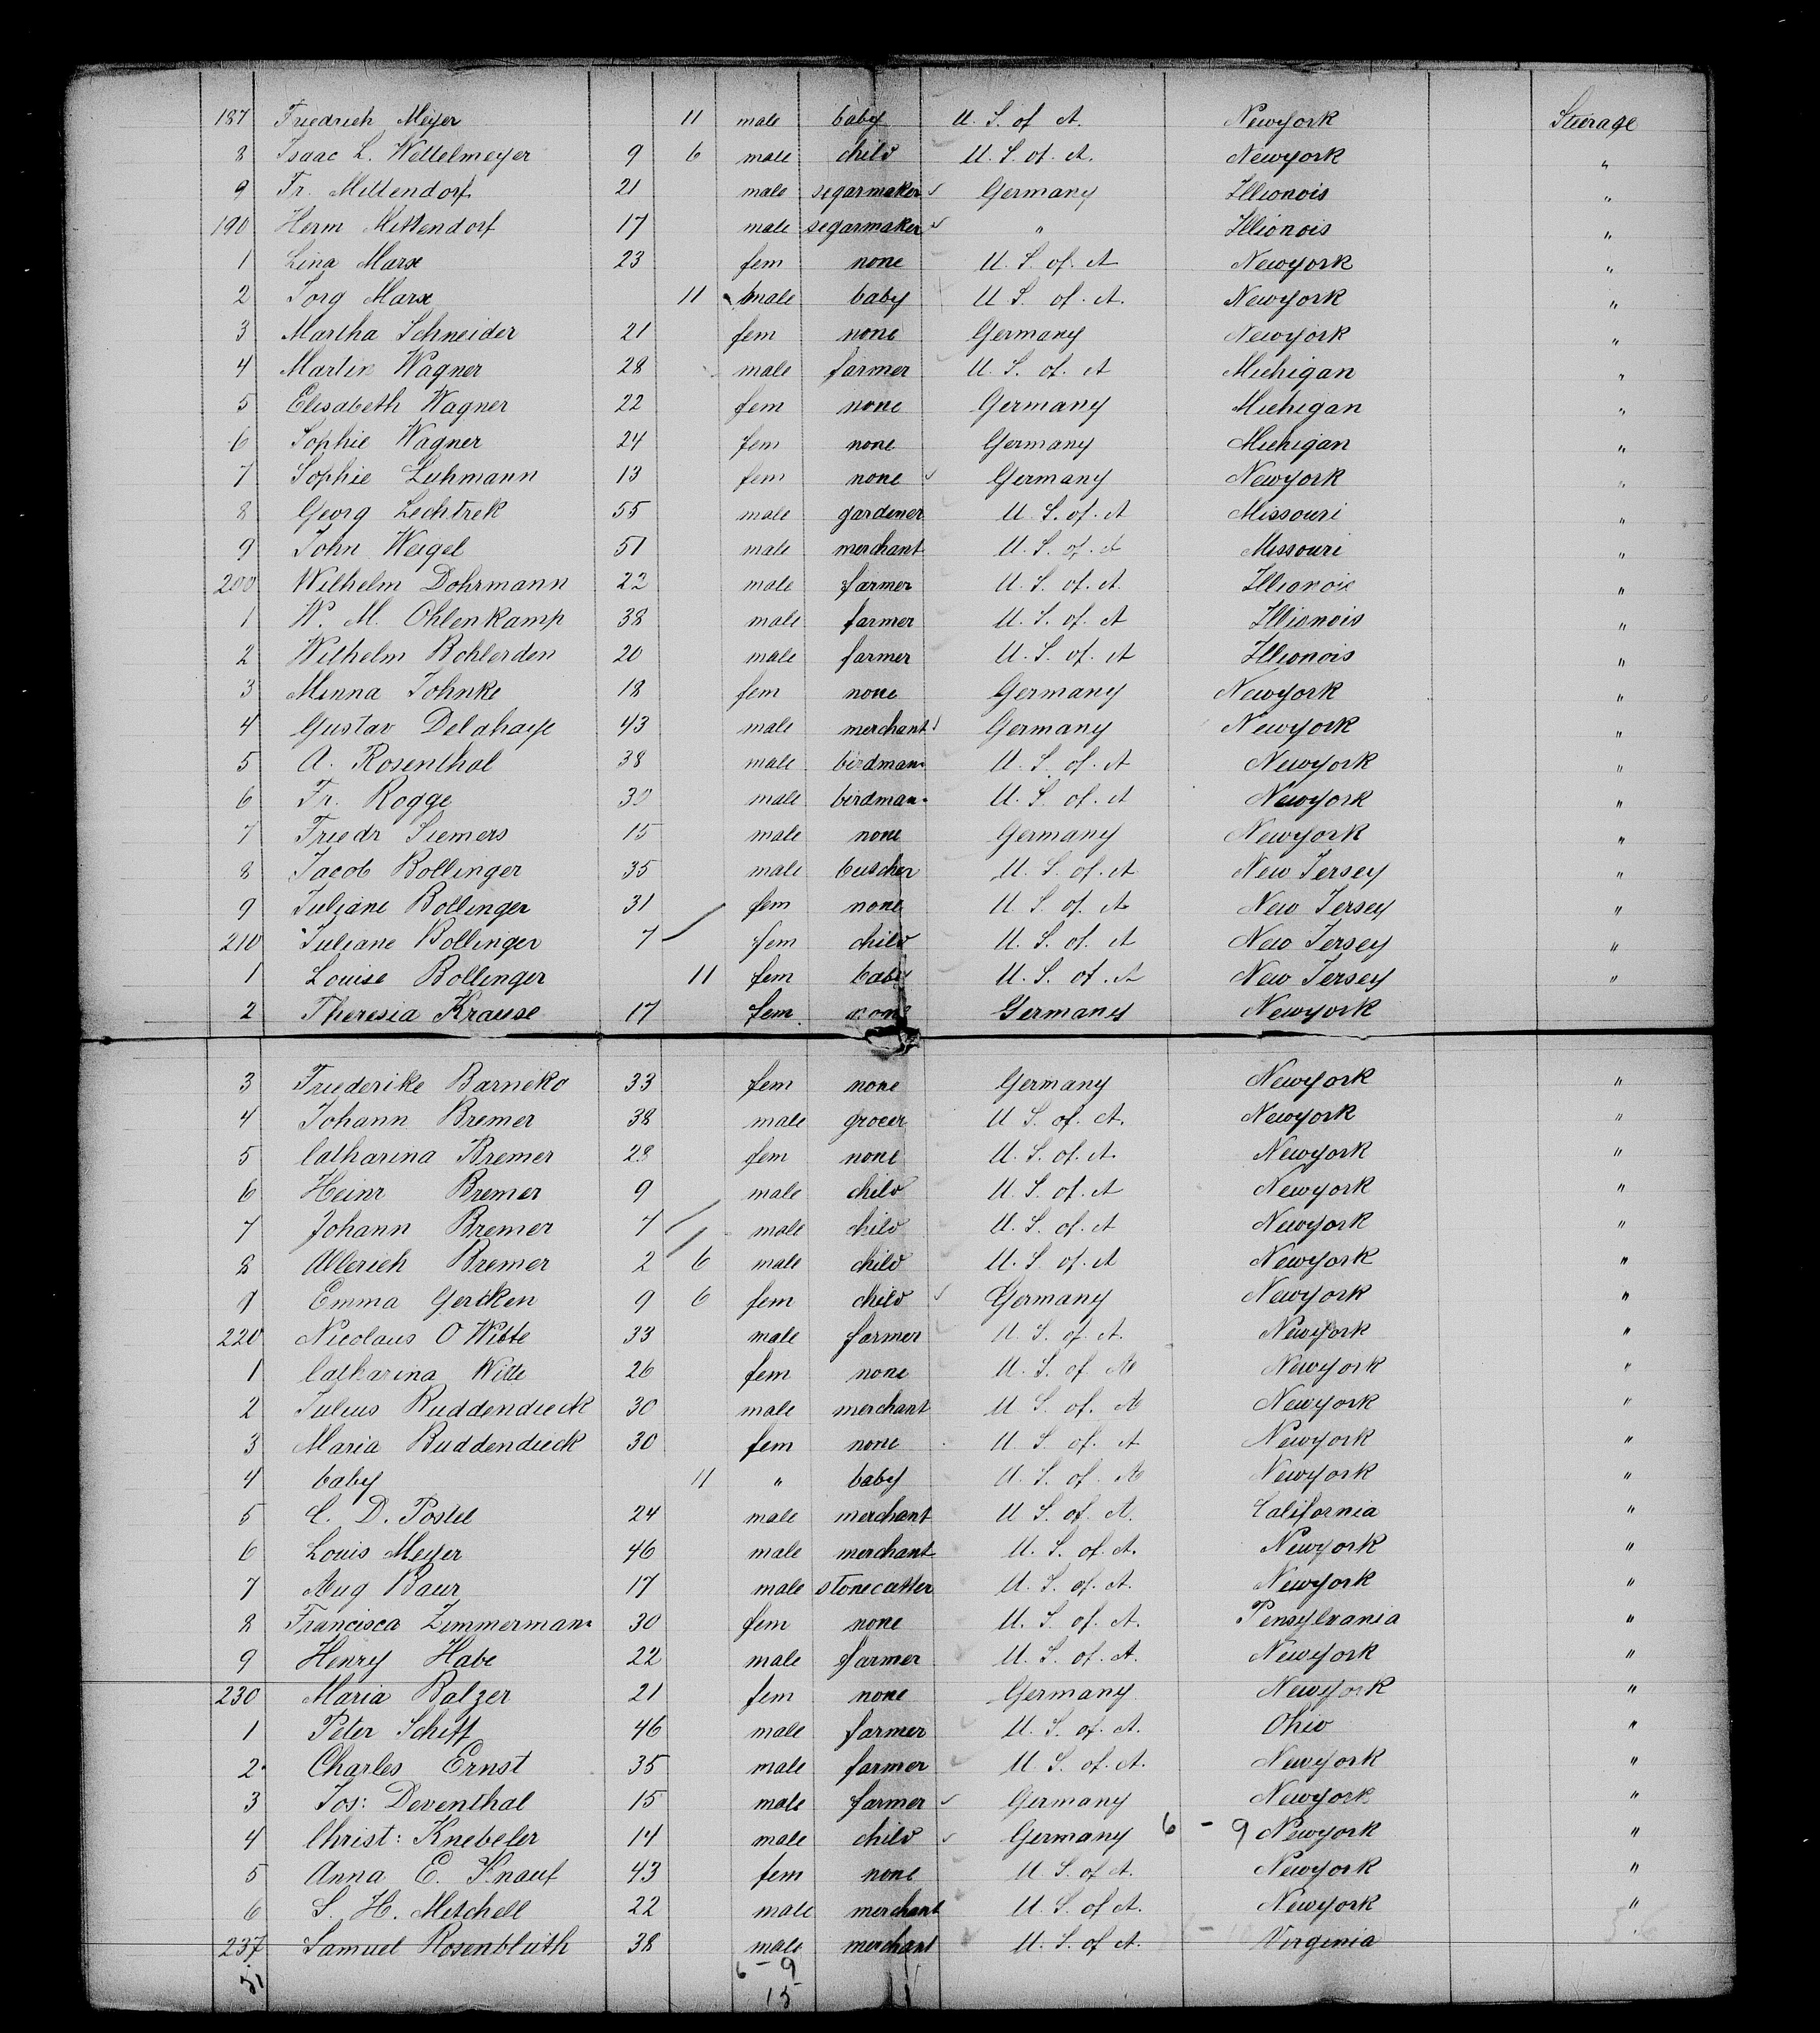 187 Friedrich Meyer 11 male baby U. S. of A. Newyork Steerage
8 Isaac L. Wettelmeyer 9 6 male child U. S. of. A. Newyork "
9 Fr. Mittendorf 21 male segarmaker Germany Illionois "
190 Herm Mittendorf 17 male segarmaker " Illionois "
1 Lina Marx 23 fem none U. S. of. A Newyork "
2 Jorg Marx 11 male baby U S. of. A. Newyork "
3 Martha Schneider 21 fem none Germany Newyork "
4 Martin Wagner 28 male farmer U. S. of. A Michigan "
5 Elisabeth Wagner 22 fem none Germany Michigan "
6 Sophie Wagner 24 fem none Germany Michigan "
7 Sophie Luhmann 13 fem none Germany Newyork "
8 Georg Lechtrek 55 male gardener U. S. of. A Missouri "
9 John Weigel 51 male merchant U. S. of. A Missouri "
200 Wilhelm Dohrmann 22 male farmer U. S. of. A. Illionois "
1 W. M. Ohlenkamp 38 male farmer U. S. of. A Illionois "
2 Wilhelm Bohlerden 20 male farmer U. S. of. A Illionois "
3 Minna Johnke 18 fem none Germany Newyork "
4 Gustav Delahaye 43 male merchant Germany Newyork "
5 A. Rosenthal 38 male birdman U. S. of. A Newyork "
6 Fr. Rogge 30 male birdman U. S. of. A Newyork "
7 Friedr Siemers 15 male none Germany Newyork "
8 Jacob Bollinger 35 male butscher U. S. of. A New Jersey "
9 Juliane Bollinger 31 fem none U. S. of. A New Jersey "
210 Juliane Bollinger 7 fem child U. S. of. A New Jersey "
1 Louise Bollinger 11 fem baby U. S. of. A New Jersey "
2 Theresia Krause 17 fem none Germany Newyork
3 Friederike Barneko 33 fem none Germany Newyork "
4 Johann Bremer 38 male grocer U S. of. A. Newyork "
5 Catharina Bremer 28 fem none U. S. of. A. Newyork "
6 Heinr Bremer 9 male child U. S. of. A Newyork "
7 Johann Bremer 7 male child U. S. of. A Newyork "
8 Allerich Bremer 2 6 male child U. S. of. A Newyork "
9 Emma Gercken 9 6 fem child Germany Newyork "
220 Nicolaus O Witte 33 male farmer U. S. of. A. Newyork "
1 Catharina Witte 26 fem none U. S. of A Newyork "
2 Julius Buddendieck 30 male merchant U S. of. A Newyork "
3 Maria Buddendieck 30 fem none U. S. of. A Newyork "
4 baby 11 " baby U. S. of. A Newyork "
5 C. D. Postel 24 male merchant U S. of A. California "
6 Louis Meyer 46 male merchant U. S. of. A. Newyork "
7 Aug Baur 17 male stonecutter U. S. of. A. Newyork "
8 Francisca Zimmermann 30 fem none U. S. of. A. Pensylvania "
9 Henry Habe 22 male farmer U. S. of. A. Newyork "
230 Maria Balzer 21 fem none Germany Newyork "
1 Peter Schiff 46 male farmer U. S. of. A. Ohio "
2 Charles Ernst 35 male farmer U. S. of. A. Newyork "
3 Jos: Deventhal 15 male farmer Germany Newyork "
4 Christ: Knebeler 14 male child Germany 6 - 9 Newyork "
5 Anna E. Knauf 43 fem none U. S. of A. Newyork "
6 S. H. Mitchell 22 male merchant U. S. of A. Newyork "
237 Samuel Rosenbluth 38 male merchant U. S. of A. Virginia
51 6 - 9
15